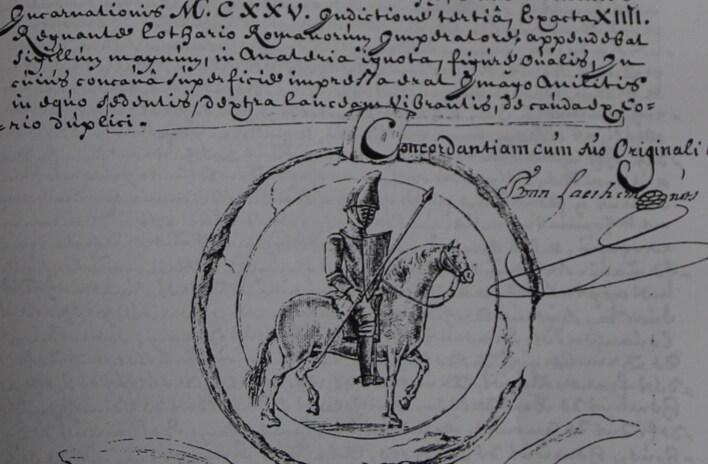 Incarnationis M. C XX V. Indictione tertiâ, Epacta XIIII.
Regnante Lothario Romanorum Imperatore, appendebat
sigillum magnum, in Materia ignota, figuré Oualis, In
cuius concauâ superficie impressa erat Imago Militis
in equo sedentis, dextra lanceam Vibrantis, de cauda ex Co=
=rio duplici.
Concordantiam cum suo Originali